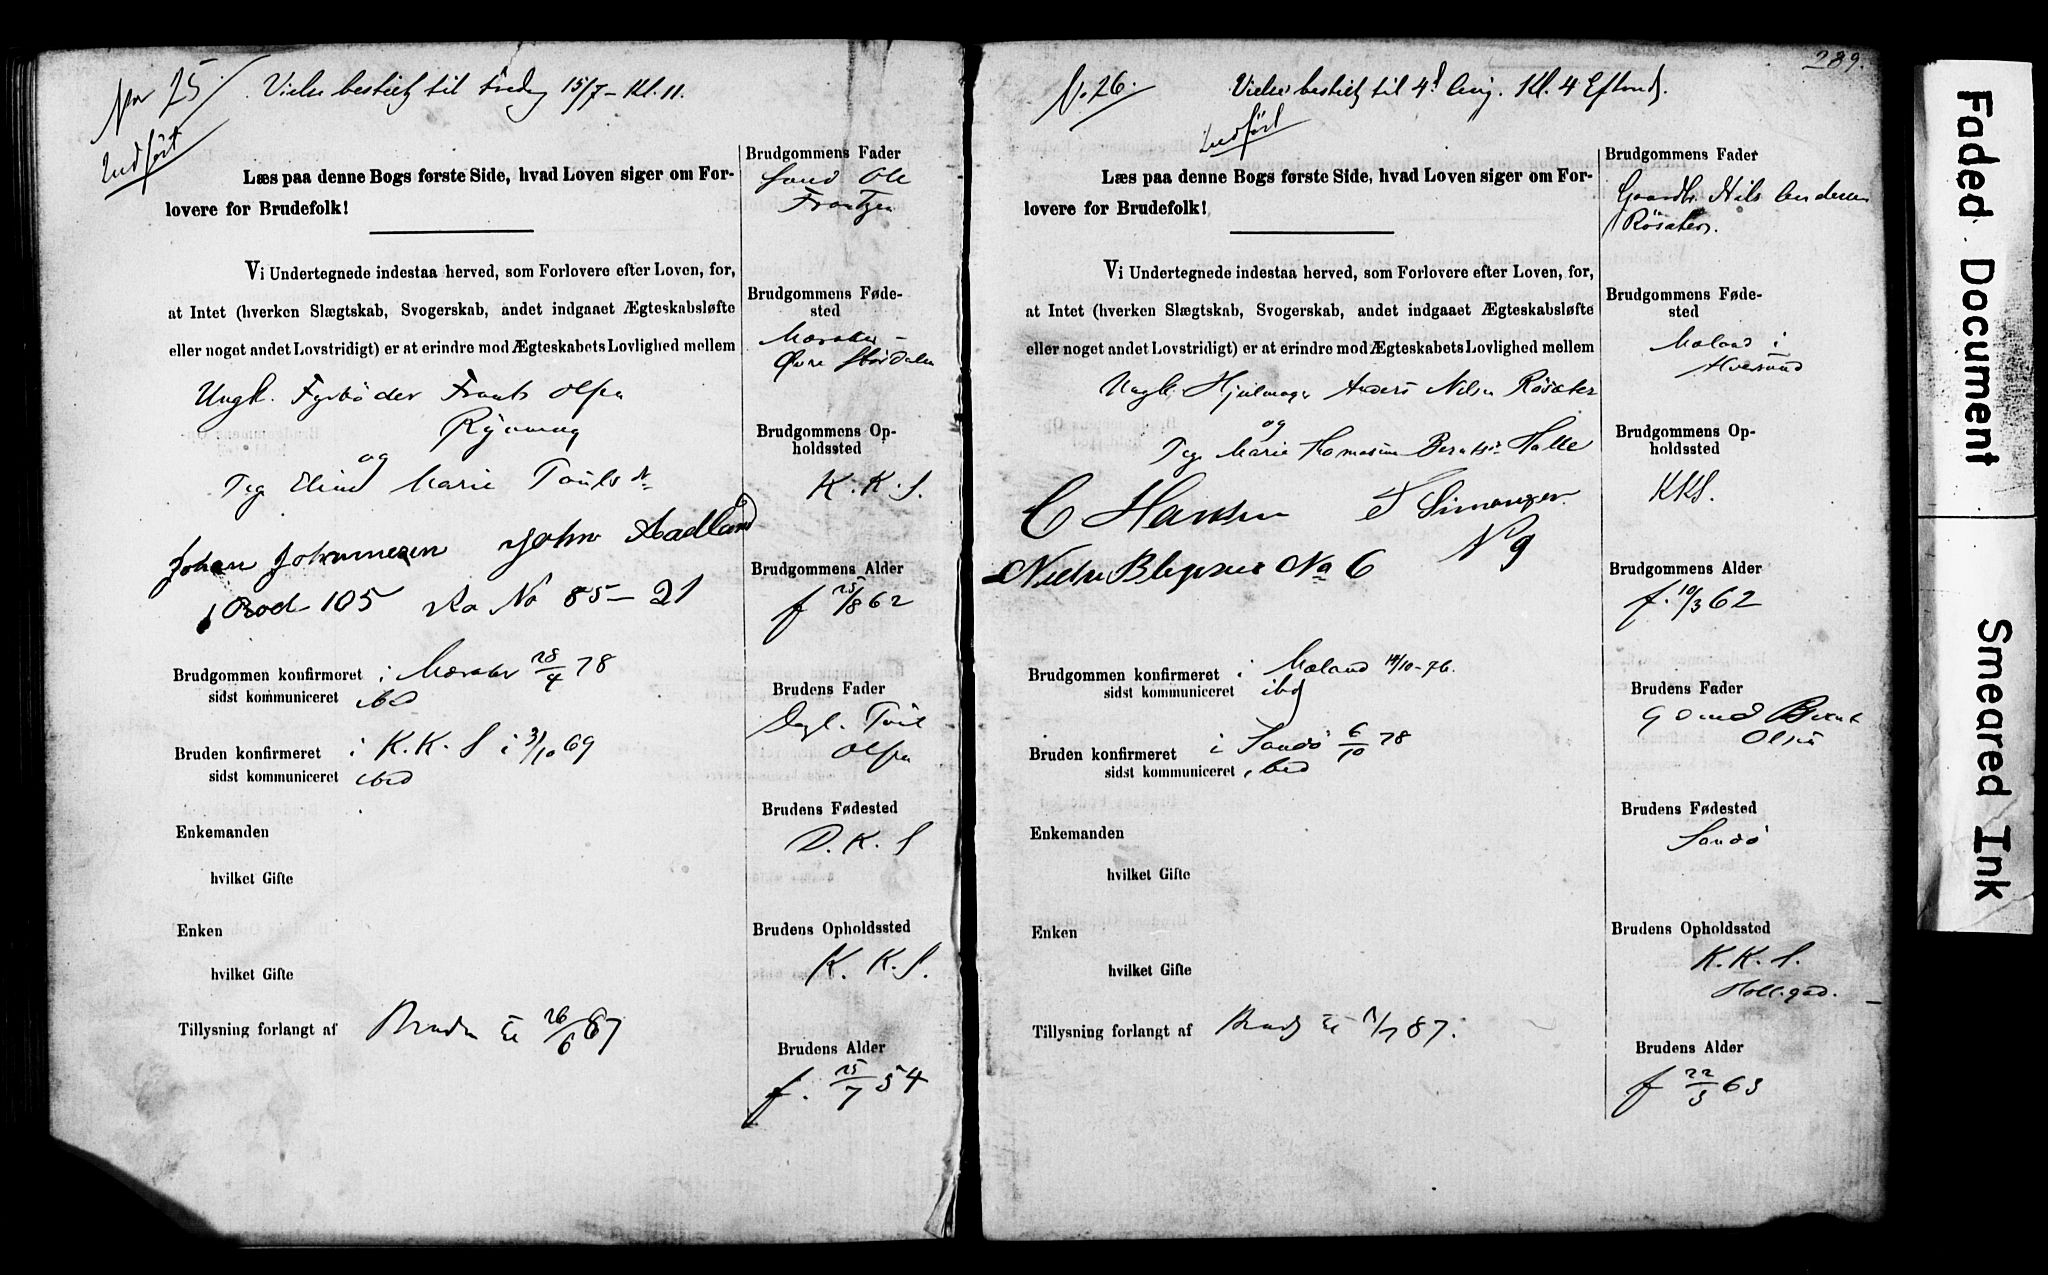 No 25
Vielse bestielt til Fredag 15/7 - Kl. 11.
Indført
Læs paa denne Bogs første Side, hvad Loven siger om For-
lovere for Brudefolk!
Vi Undertegnede indestaa herved, som Forlovere efter Loven, for,
at Intet (hverken Slægtskab, Svogerskab, andet indgaaet Ægteskabsløfte
eller noget andet Lovstridigt) er at erindre mod Ægteskabets Lovlighed mellem
Ungk. Fyrbøder Frants Olsen
og
Pige Marie
Johan Johannesen John Aadland
Rod 105 No 85-21
Brudgommen konfirmeret i Meraker 28/4 78
sidst kommuniceret ibid
Bruden konfirmeret i K.K.S i 3/10 69
sidst kommuniceret ibid
Enkemanden
hvilket Gifte
Enken
hvilket Gifte
Tillysning forlangt af Bruden 26/6 87
Brudgommens Fader
Ole
Frantzen
Brudgommens Føde-
sted
Meraker -
Øvre Størdalen
Brudgommens Op-
holdssted
K. K. S.
Brudgommens Alder
f 25/8 62
Brudens Fader
Olsen
Brudens Fødested
D. K. S
Brudens Opholdssted
K. K. S.
Brudens Alder
f. 25/7 54
289.
N. 26.
Vielse bestielt til 4d Aug. Kl. 4 Efterm.
Indført
Læs paa denne Bogs første Side, hvad Loven siger om For-
lovere for Brudefolk!
Vi Undertegnede indestaa herved, som Forlovere efter Loven, for,
at Intet (hverken Slægtskab, Svogerskab, andet indgaaet Ægteskabsløfte
eller noget andet Lovstridigt) er at erindre mod Ægteskabets Lovlighed mellem
Ungk. Hjulmager Anders Nilsen Røsæter
og
Pige Marie Thomasine Berntsen Halle
C Hansen
N 9
No 6
Brudgommen konfirmeret i Moland 14/10-76.
sidst kommuniceret ibd
Bruden konfirmeret i Sandø 6/10 78
sidst kommuniceret ibid
Enkemanden
hvilket Gifte
Enken
hvilket Gifte
Tillysning forlangt af 87.
Brudgommens Fader
Gaardbr. Nils Andersen
Røsæter.
Brudgommens Føde-
sted
Moland i
Brudgommens Op-
holdssted
KKS.
Brudgommens Alder
f. 10/3 62
Brudens Fader
Bernt
Olsen
Brudens Fødested
Sandø
Brudens Opholdssted
K. K. S.
Brudens Alder
f 22/3 63
Faded Document
Smeared Ink